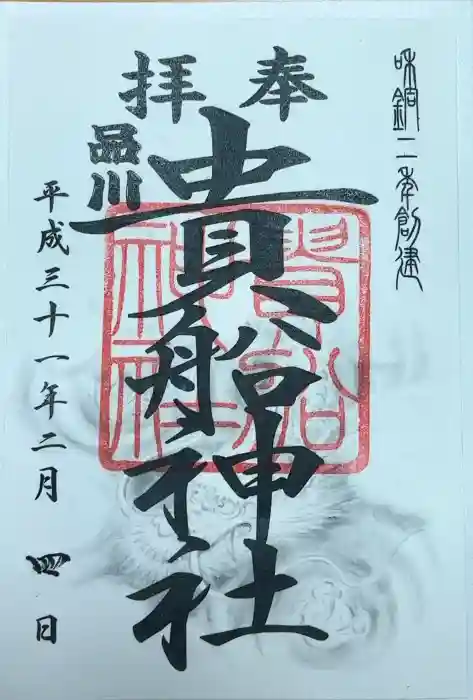 和銅二年創建
奉拝
品川
貴船神社
平成三十一年二月四日
貴船神社